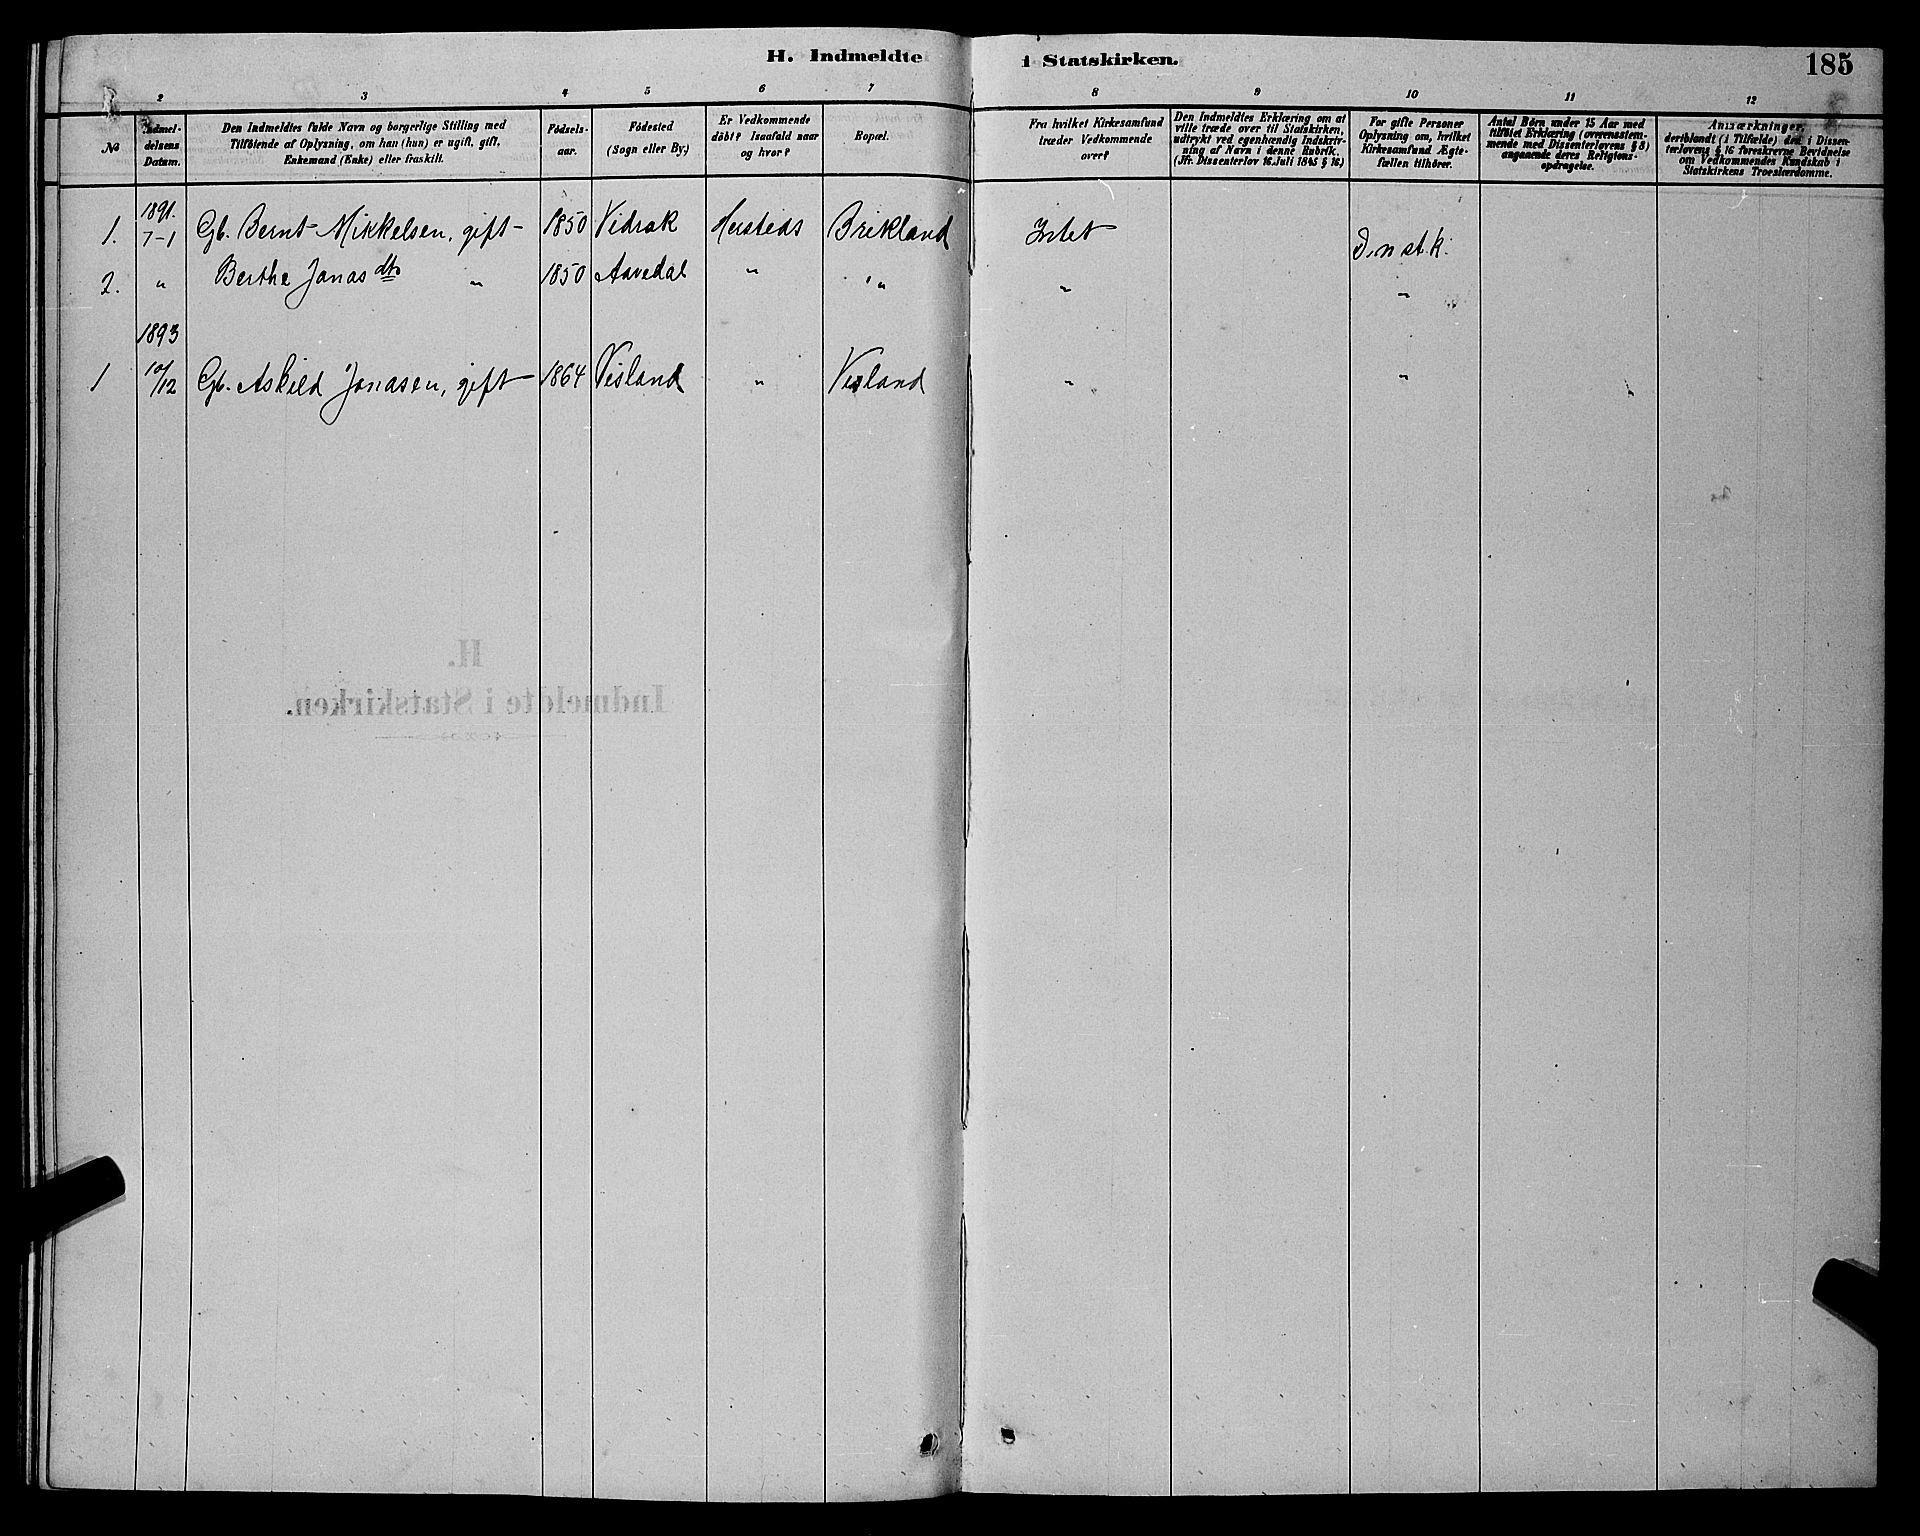 H. Indmeldte i Statskirken. 185
2 3 4 5 6 7 8 9 10 11 12
№
Indmel-
delsens
Datum.
Den Indmeldtes fulde Navn og borgerlige Stilling med
Tilföiende af Oplysning, om han (hun) er ugift, gift,
Enkemand (Enke) eller fraskilt.
Födsels-
aar.
Födested
(Sogn eller By.)
Er Vedkommende
döbt? Isaafald naar
og hvor?
Bopæl.
Fra hvilket Kirkesamfund
træder Vedkommende
over?
Den Indmeldtes Erklæring om at
ville træde over til Statskirken,
udtrykt ved egenhændig Indskriv-
ning af Navn i denne Rubrik.
(Jfr. Dissenterlov 16. Juli 1845 § 16.)
For gifte Personer
Oplysning om, hvilket
Kirkesamfund Ægte-
fællen tilhörer.
Antal Börn under 15 Aar med
tilföiet Erklæring (overensstem-
mende med Dissenterlovens § 8)
angaaende deres Religions-
opdragelse.
Anmærkninger,
deriblandt (i Tilfælde) den i Dissen-
terlovens § 16 foreskrevne Bevidnelse
om Vedkommendes Kundskab i
Statskirkens Troeslærdomme.
1891.
1. 7-1 Gb. Bernt Mikkelsen, gift 1850 Vidrak Heisteds Brekland Intet D. n st.k.
2. " Berthe Jonasdtr " 1850 Aavedal " " " "
1893
1 10/12 Gb. Askild Jonasen, gift 1864 Visland " Visland " "
H.
Indmeldte i Statskirken.